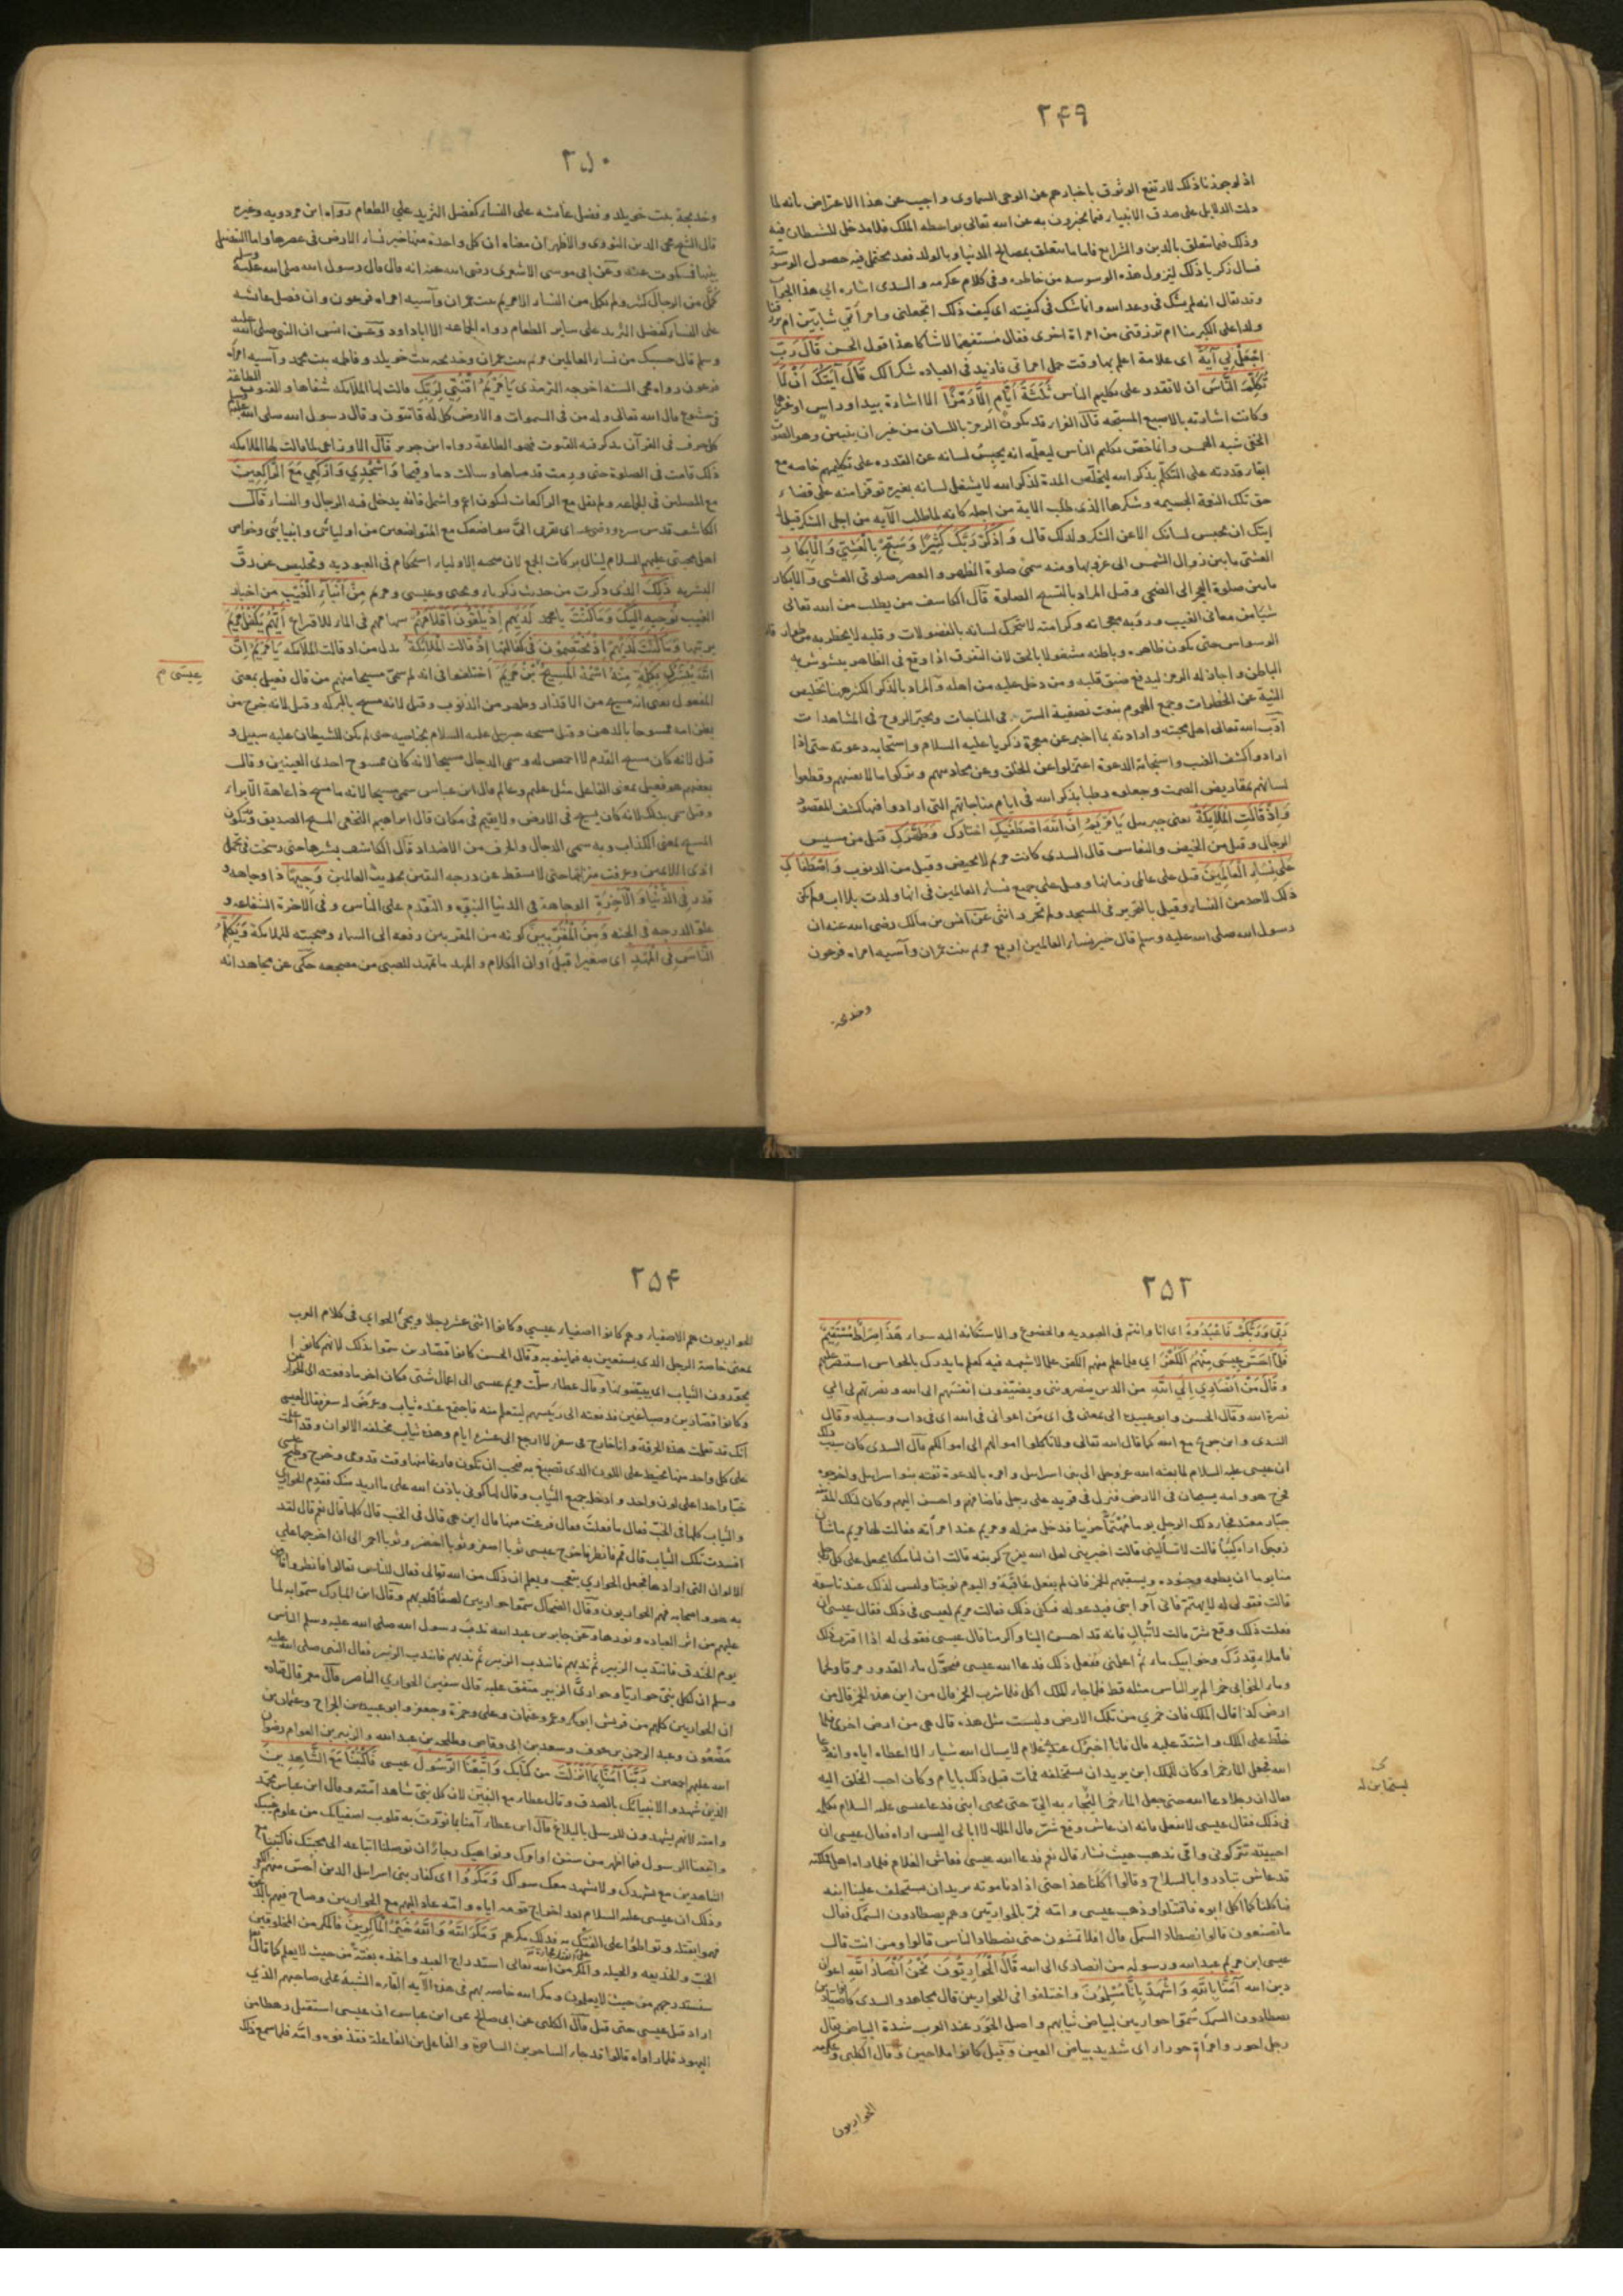 ٢٤٩
اذ لو جوزنا ذلك لارتفع الوثوق باخبارهم عن الوحى السماوى واجيب عن هذا الاعتراض بانه لما
دلت الدلايل على صدق الانبياء فيما يخبرون به عن الله تعالى بواسطة الملك فلا مدخل للشيطان فيه
وذلك فيما يتعلق بالدين والشرايع فاما ما يتعلق بمصالح الدنيا وبالولد فقد يحتمل فيه حصول الوسوسة
فسال زكريا ذلك ليزول هذه الوسوسه من خاطره وفى كلام عكرمه والسدى اشاره الى هذا الجواب
وقد يقال انه لم يشك فى وعد الله وانما شك فى كيفيته اى كيف ذلك اتجعلنى وامرأتى شابين ام ترزقنا
ولدا على الكبر منا ام ترزقنى من امراة اخرى فقال مستفهما لا شاكا هذا قول الحسن قَالَ رَبِّ
اجْعَلْ لِي آيَةً اى علامة اعلم بها وقت حمل امراتى فازيد فى العباده شكرا لك قَالَ آيَتُكَ أَنْ لَا
تُكَلِّمَ النَّاسَ ان لا تقدر على تكليم الناس ثَلٰثَةَ أَيَّامٍ إِلَّا رَمْزًا الا اشارة بيد او راس او غيرهما
وكانت اشارته بالاصبع المسبحه قال الفراء قد يكون الرمز باللسان من غير ان يتبين وهو الصوت
الخفى شبه الهمس وانما خصّ تكليم الناس ليعلمه انه يحبس لسانه عن القدره على تكليمهم خاصه مع
ابقاء قدرته على التكلّم بذكر الله ليخلّص المدة لذكر الله لا يشغل لسانه بغيره توقرا منه على قضاء
حق تلك النعمة الجسيمه وشكرها الذى طلب الاية من اجله كانه لما طلب الآيه من اجل الشكر قيل له
ايتك ان يحبس لسانك الا عن الشكر ولذلك قال وَاذْكُرْ رَبَّكَ كَثِيرًا وَسَبِّحْ بِالْعَشِيِّ وَالْإِبْكَارِ
العشى مابين زوال الشمس الى غروبها ومنه سمى صلوة الظهر والعصر صلوتى العشى والابكار
مابين صلوة الفجر الى الضحى وقيل المراد بالتسبيح الصلوة قال الكاشف من يطلب من الله تعالى
شيا من معانى الغيب ورؤية معجزاته وكرامته لا تتحرك لسانه بالفضولات وقلبه لا يخطر به من
الوسواس حتى يكون ظاهره وباطنه مشغولا بالحق لان التفرق اذا وقع فى الظاهر يشوش به
الباطن واجاز له الرمز ليدفع ضيق قلبه ومن دخل عليه من اهله والمراد بالذكر الكثير هنا تخليص
النية عن الخطرات وجمع الهموم بنعت تصفية السر فى المناجات وتحير الروح فى المشاهدات
ادّب الله تعالى اهل محبته وارادته بما اخبر عن معجزة زكريا عليه السلام واستجابه دعوته حتى اذا
ارادوا كشف الغيب واستجابة الدعوة اعتزلوا عن الخلق وعن محادثتهم وتركوا ما لا يعنيهم وقطعوا
لسانهم بمقاريض الصمت وجعلوه رطبا بذكر الله فى ايام مناجاتهم التى ارادوا فيها كشف المقصود
وَإِذْ قَالَتِ الْمَلَائِكَةُ يعنى جبرئيل يَا مَرْيَمُ إِنَّ اللَّهَ اصْطَفَيكِ اختارك وَطَهَّرَكِ قيل من مسيس
الرجال وقيل من الحيض والنفاس قال السدى كانت مريم لا تحيض وقيل من الذنوب وَاصْطَفَاكِ
عَلَى نِسَاءِ الْعَالَمِينَ قيل على عالمى زمانها وقيل على جميع نساء العالمين فى انها ولدت بلا اب ولم يكن
ذلك لاحد من النساء وقيل بالتحرير فى المسجد ولم تحرر انثى عن انس بن مالك رضى الله عنه ان
رسول الله صلى الله عليه وسلم قال خير نساء العالمين اربع مريم بنت عمران وآسيه امراه فرعون
وخديجة
٢٥٠
وخديجة بنت خويلد وفضل عائشه على النساء كفضل الثريد على الطعام رواه ابن مردويه وغيره
قال الشيخ محى الدين النووى والاظهر ان معناه ان كل واحدة منهما خير نساء الارض فى عصرها واما التفضيل
بينهما فمسكوت عنه وعن ابى موسى الاشعرى رضى الله عنه انه قال قال رسول الله صلى الله عليه وسلم
كمُل من الرجال كثير ولم يكمل من النساء الا مريم بنت عمران وآسيه امراه فرعون وان فضل عائشه
على النساء كفضل الثريد على ساير الطعام رواه الجماعه الا ابا داود وعن انس ان النبى صلى الله عليه
وسلم قال حسبك من نساء العالمين مريم بنت عمران وخديجه بنت خويلد وفاطمه بنت محمد وآسيه امراة
فرعون رواه محى السنه اخرجه الترمذى يَا مَرْيَمُ اقْنُتِي لِرَبِّكِ قالت لها الملائكه شفاها والقنوت الطاعة
فى خشوع قال الله تعالى وله من فى السموات والارض كل له قانتون وقال رسول الله صلى الله عليه وسلم
كل حرف فى القرآن يذكر فيه القنوت فهو الطاعة رواه ابن جرير قال الاوزاعى لما قالت لها الملائكه
ذلك قامت فى الصلوة حتى ورمت قدماها وسالت دما وقيحا وَاسْجُدِي وَارْكَعِي مَعَ الرَّاكِعِينَ
مع المصلين فى الجماعه ولم يقل مع الراكعات ليكون اعم واشمل فانه يدخل فيه الرجال والنساء قال
الكاشف قدس سره اى تقربى الىّ بتواضعك مع المتواضعين من اوليائى وانبيائى وخواص
اهل محبتى عليهم السلام لينال بركات الجمع لان صحبه الاولياء استحكام فى العبوديه وتخليص عن رقّ
البشريه ذَلِكَ الذى ذكرت من حديث زكريا ويحيى وعيسى ومريم مِنْ أَنْبَاءِ الْغَيْبِ من اخبار
الغيب نُوحِيهِ إِلَيْكَ وَمَا كُنْتَ يا محمد لَدَيْهِمْ إِذْ يُلْقُونَ أَقْلَامَهُمْ سهامهم فى الماء للاقتراع أَيُّهُمْ يَكْفُلُ مَرْيَمَ
يربّيها وَمَا كُنْتَ لَدَيْهِمْ إِذْ يَخْتَصِمُونَ فى كفالتها إِذْ قَالَتِ الْمَلَائِكَةُ بدل من اذ قالت الملائكه يَا مَرْيَمُ إِنَّ
اللَّهَ يُبَشِّرُكِ بِكَلِمَةٍ مِنْهُ اسْمُهُ الْمَسِيحُ بْنُ مَرْيَمَ اختلفوا فى انه لم سمى مسيحا منهم من قال فعيل بمعنى
عيسى م
المفعول يعنى انه مسح من الاقذار وطهر من الذنوب وقيل لانه مسح بالبركه وقيل لانه خرج من
بطن امه ممسوحا بالدهن وقيل مسحه جبريل عليه السلام بجناحيه حتى لم يكن للشيطان عليه سبيل و
قيل لانه كان مسيح القدم لا اخمص له وسمى الدجال مسيحا لانه كان ممسوح احدى العينين وقال
بعضهم هو فعيل بمعنى الفاعل مثل عليم وعالم قال ابن عباس سمى مسيحا لانه ما مسح ذا عاهة الا برأ
وقيل سمى بذلك لانه كان يسيح فى الارض ولا يقيم فى مكان قال ابراهيم النخعى المسيح الصديق ويكون
المسيح بمعنى الكذاب وبه سمى الدجال والحرف من الاضداد قال الكاشف بشرها حتى رسخت فى تحمل
اذى اللائمين وعرفت منزلتها حتى لا تسقط عن درجه اليقين بحديث العالمين وَجِيهًا ذا وجاهه و
قدر فِي الدُّنْيَا وَالْآخِرَةِ الوجاهة فى الدنيا النبوة والتقدم على الناس وفى الآخرة الشفاعه و
علو الدرجه فى الجنه وَمِنَ الْمُقَرَّبِينَ كونه من المقربين رفعه الى السماء وصحبته للملائكة وَيُكَلِّمُ
النَّاسَ فِي الْمَهْدِ اى صغيرا قبل اوان الكلام والمهد ما يمهد للصبى من مضجعه حكى عن مجاهد انه
٢٥٢
رَبِّي وَرَبُّكُمْ فَاعْبُدُوهُ اى انا وانتم فى العبوديه والخضوع والاستكانه اليه سواء هَذَا صِرَاطٌ مُسْتَقِيمٌ
فَلَمَّا أَحَسَّ عِيسَى مِنْهُمُ الْكُفْرَ اى فلما علم منهم الكفر علما لا شبهه فيه كعلم ما يدرك بالحواس استنصر عليهم
وقَالَ مَنْ أَنْصَارِي إِلَى اللَّهِ من الذين ينصروننى ويضيفون انفسهم الى الله ونصرتهم لى الى
نصرة الله وقال الحسن وابو عبيده الى بمعنى فى اى من اعوانى فى الله اى فى ذات الله وسبيله وقال
السدى وابن جريج مع الله كما قال الله تعالى ولا تاكلوا اموالهم الى اموالكم قال السدى كان سبب ذلك
ان عيسى عليه السلام لما بعثه الله عز وجل الى بنى اسرائيل وامره بالدعوة نفته بنو اسرائيل واخرجوه
فخرج هو وامه يسيحان فى الارض فنزل فى قرية على رجل فاضافهم واحسن اليهم وكان لتلك المدينة
جبار معتد فجاء ذلك الرجل يوما مهتمّا حزينا فدخل منزله ومريم عند امرأته فقالت لها مريم ما شان
زوجك اراه كئيبا قالت لا تسألينى قالت اخبرينى لعل الله يفرج كربته قالت ان لنا ملكا يجعل على كل رجل
منا يوما ان يطعمه وجنوده ويسقيهم الخمر فان لم يفعل عاقبه واليوم نوبتنا وليس لذلك عندنا سعة
قالت فقولى له لا يهتم فانى آمر ابنى فيدعو له فيكفى ذلك فقالت مريم لعيسى فى ذلك فقال عيسى ان
فعلت ذلك وقع شر قالت لا تبال فانه قد احسن الينا واكرمنا قال عيسى فقولى له اذا اقترب ذلك
فاملاء قدرك وخوابيك ماء ثم اعلمنى ففعل ذلك فدعا الله عيسى فتحوّل ماء القدور مرقا ولحما
وماء الخوابى خمرا لم ير الناس مثله قط فلما جاء الملك اكل فلما شرب الخمر قال من اين هذه الخمر قال من
ارض كذا قال الملك فان خمرى من تلك الارض وليست مثل هذه قال هى من ارض اخرى فلما
خلط على الملك واشتد عليه قال فانا اخبرك عندى غلام لا يسال الله شيا الا اعطاه اياه وانه دعا
الله فجعل الماء خمرا وكان للملك ابن يريد ان يستخلفه فمات قبل ذلك بايام وكان احب الخلق اليه
فقال ان رجلا دعا الله حتى جعل الماء خمرا ليجاء به الىّ حتى يحيى ابنى فدعا عيسى عليه السلام فكلمه
فى ذلك فقال عيسى لا تفعل فانه ان عاش وقع شر قال الملك لا ابالى اليس اراه فقال عيسى ان
احييته تتركونى وامى نذهب حيث نشاء قال نعم فدعا الله عيسى فعاش الغلام فلما راه اهل مملكته
قد عاش تبادروا بالسلاح وقالوا اكلنا هذا حتى اذا دنا موته يريد ان يستخلف علينا ابنه
فياكلنا كما اكل ابوه فاقتتلوا وذهب عيسى وامه فمر بالحواريين وهم يصطادون السمك فقال
ما تصنعون قالوا نصطاد السمك قال افلا تمشون حتى نصطاد الناس قالوا ومن انت قال
عيسى ابن مريم عبد الله ورسوله من انصارى الى الله قَالَ الْحَوَارِيُّونَ نَحْنُ أَنْصَارُ اللَّهِ اعوان
دين الله آمَنَّا بِاللَّهِ وَاشْهَدْ بِأَنَّا مُسْلِمُونَ واختلفوا فى الحواريين قال مجاهد والسدى كانوا صيادين
يصطادون السمك سمّوا حواريين لبياض ثيابهم واصل الحَوَر عند العرب شدة البياض يقال
رجل احور وامرأة حوراء اى شديد بياض العين وقيل كانوا ملاحين وقال الكلبى وعكرمه
الحواريون
٢٥٤
الحواريون هم الاصفياء وهم كانوا اصفياء عيسى وكانوا اثنى عشر رجلا ويجئ الحوارى فى كلام العرب
بمعنى خاصة الرجل الذى يستعين به فيما ينوبه وقال الحسن كانوا قصارين سمّوا بذلك لانهم كانوا
يحوّرون الثياب اى يبيّضونها وقال عطاء سلّمت مريم عيسى الى اعمال شتى فكان اخر ما دفعته الى الحواريين
وكانوا قصارين وصباغين فدفعته الى رئيسهم ليتعلم منه فاجتمع عنده ثياب وعرض له سفر فقال لعيسى
انك قد تعلمت هذه الحرفة وانا خارج فى سفر لا ارجع الى عشرة ايام وهذه ثياب مختلفه الالوان وقد اعلمت
على كل واحد منها بخيط على اللون الذى تصبغ به فيجب ان تكون فارغا منها وقت قدومى وخرج وطبخ عيسى
حبّا واحدا على لون واحد وادخل جميع الثياب وقال لها كونى باذن الله على ما اريد منك فقدم الحوارى
والثياب كلها فى الحبّ فقال ما فعلت فقال فرغت منها قال اين هى قال فى الحب قال كلها قال نعم قال لقد
افسدت تلك الثياب قال قم فانظر فاخرج عيسى ثوبا اصفر وثوبا اخضر وثوبا احمر الى ان اخرجها على
الالوان التى ارادها فجعل الحوارى يتعجب ويعلم ان ذلك من الله تعالى فقال للناس تعالوا فانظروا فامن
به هو واصحابه فهم الحواريون وقال الضحاك سمّوا حواريين لصفا قلوبهم وقال ابن المبارك سمّوا به لما
عليهم من اثر العباده ونورها وعن جابر بن عبد الله ندب رسول الله صلى الله عليه وسلم الناس
يوم الخندق فانتدب الزبير ثم ندبهم فانتدب الزبير ثم ندبهم فانتدب الزبير فقال النبى صلى الله عليه
وسلم ان لكل نبى حواريّا وحوارىّ الزبير متفق عليه قال سفين الحوارى الناصر قال معمر قال قتاده
ان الحواريين كلهم من قريش ابو بكر وعمر وعثمان وعلى وحمزة وجعفر وابو عبيده بن الجراح وعثمان بن
مظعون وعبد الرحمن بن عوف وسعد بن ابى وقاص وطلحه بن عبيد الله والزبير بن العوام رضوان
الله عليهم اجمعين رَبَّنَا آمَنَّا بِمَا أَنْزَلْتَ من كتابك وَاتَّبَعْنَا الرَّسُولَ عيسى فَاكْتُبْنَا مَعَ الشَّاهِدِينَ
الذين شهدوا لانبيائك بالصدق وقال عطاء مع النبيين لان كل نبى شاهد امته وقال ابن عباس محمد
وامته لانهم يشهدون للرسل بالبلاغ قال ابن عطاء آمنا بما نوّرت به قلوب اصفيائك من علوم غيبك
واتبعنا الرسول فيما اظهر من سنن اوامرك ونواهيك رجاء ان توصلنا اتباعه الى محبتك فاكتبنا مع
الشاهدين مع من يشهدك ولا يشهد معك سواك وَمَكَرُوا اى كفار بنى اسرائيل الذين احسّ منهم الكفر
وذلك ان عيسى عليه السلام بعد اخراج قومه اياه وامه عاد اليهم مع الحواريين وصاح فيهم بالدعوة
فهموا بقتله وتواطؤا على الفتك به فذلك مكرهم وَمَكَرَ اللَّهُ وَاللَّهُ خَيْرُ الْمَاكِرِينَ فالمكر من المخلوقين
الخبث والخديعه والحيله والمكر من الله تعالى استدراج العبد واخذه بغتة من حيث لا يعلم كما قال
سنستدرجهم من حيث لا يعلمون ومكر الله خاصه بهم فى هذه الآيه القاءه الشبه على صاحبهم الذى
اراد قتل عيسى حتى قتل قال الكلبى عن ابى صالح عن ابن عباس ان عيسى استقبل رهطا من
اليهود فلما راوه قالوا قد جاء الساحر بن الساحرة والفاعل بن الفاعلة فقذفوه وامه فلما سمع ذلك